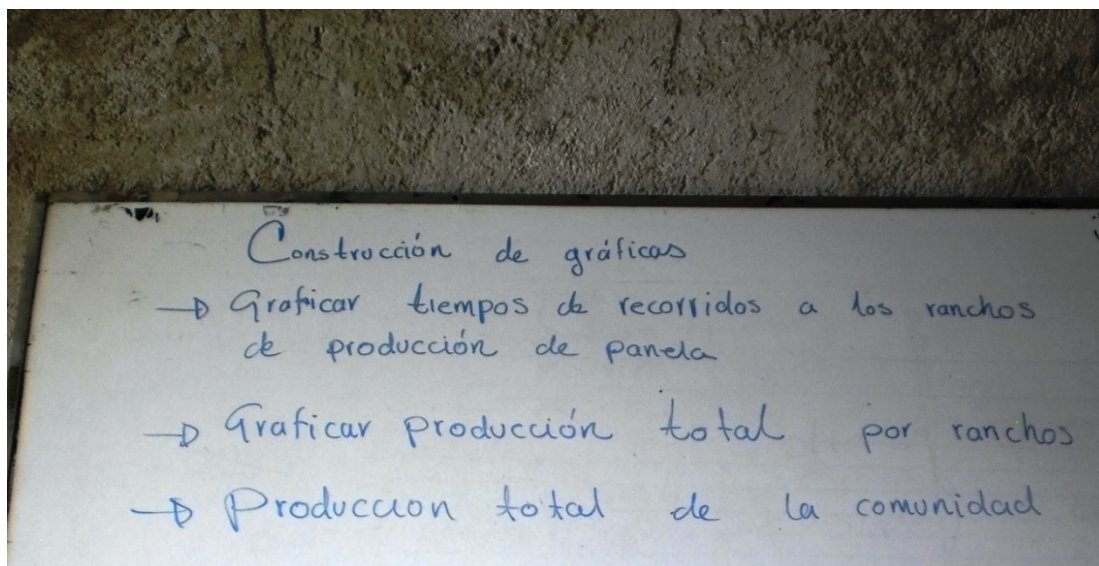 Construcción de gráficas
→ Graficar tiempos de recorridos a los ranchos
de producción de panela
→ Graficar producción total por ranchos
→ Produccion total de la comunidad